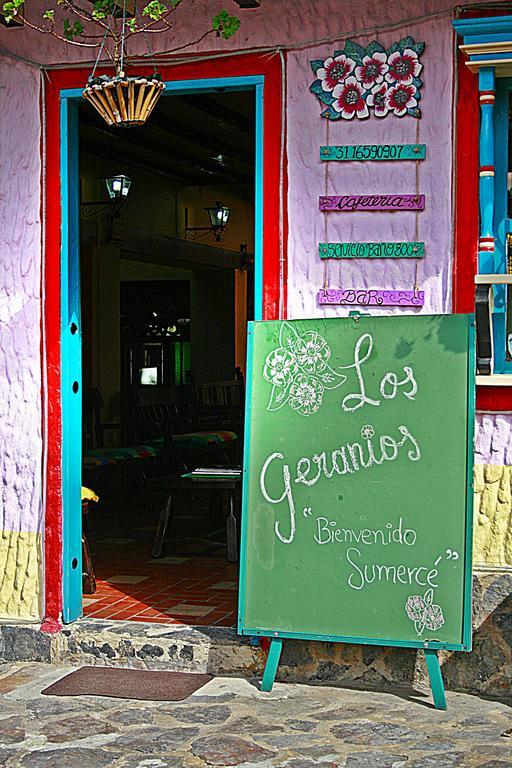 3116590907
Cafeteria
SERVICIO BAÑO 800
BAR
Los
Geranios
"Bienvenido
Sumercé"